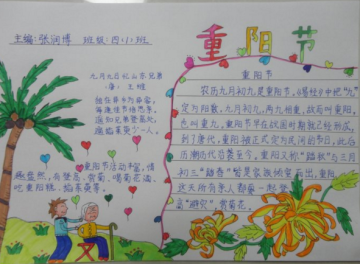 主编:张润博 班级:四(1)班
重阳节
九月九日忆山东兄弟
唐:王维
独在异乡为异客,
每逢佳节倍思亲。
遥知兄弟登高处,
遍插茱萸少一人。
重阳节活动丰富,情
趣盎然,有登高、赏菊、喝菊花酒、
吃重阳糕、插茱萸等。
重阳节
农历九月初九是重阳节,《易经》中把"九"
定为阳数,九月初九,两九相重,故而叫重阳,
也叫重九,重阳节早在战国时期就已经形成,
到了唐代,重阳被正式定为民间的节日,此后
历朝历代沿袭至今,重阳又称"踏秋"与三月
初三"踏春"皆是家族倾室而出,重阳
这天所有亲人都要一起登
高"避灾",赏菊花。